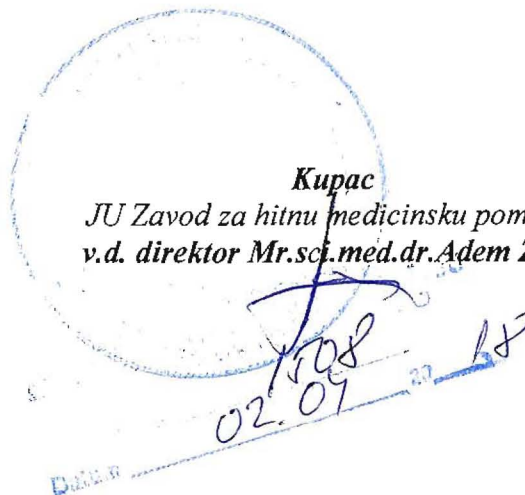 Kupac
JU Zavod za hitnu medicinsku pom
v.d. direktor Mr.sci.med.dr.Adem
508
02.04 20 18
Datum